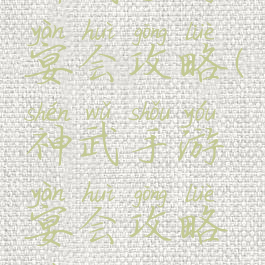 yàn huì gōng lüè
宴会攻略(
shén wǔ shǒu yóu
神武手游
yàn huì gōng lüè
宴会攻略